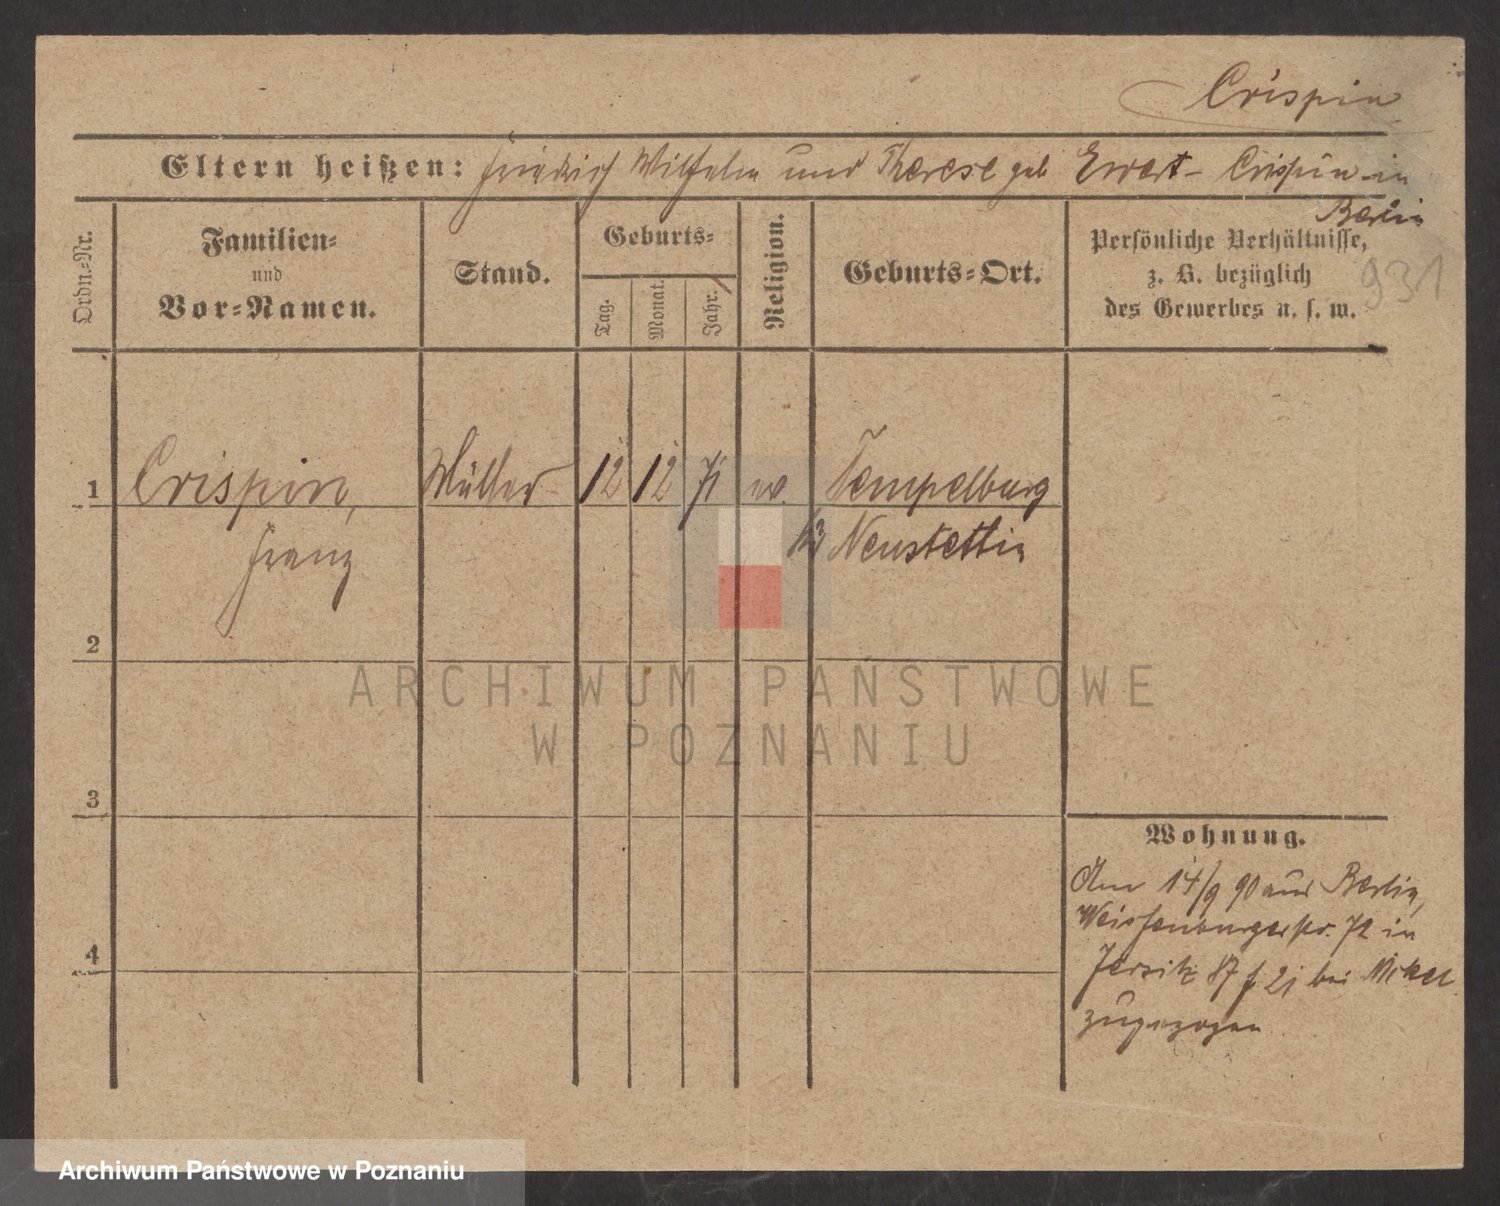 Crispin
Eltern heißen: Friedrich Wilhelm und Therese geb Ewert - Crispin in
Berlin
Ordn.-Nr.
Familien-
und
Vor-Namen.
Stand.
Geburts-
Tag.
Monat.
Jahr.
Religion.
Geburts-Ort.
Persönliche Verhältnisse,
z. B. bezüglich
des Gewerbes u. s. w.
931
1 Crispin, Müller 12 12 71 ev. Tempelburg
Franz Neustettin
2
ARCHIWUM PAŃSTWOWE
W POZNANIU
3
Wohnung.
Am 14/9 90 aus Berlin,
Weissenburgerstr. 72 in
4
Jersitz 87 bei
zugezogen
Archiwum Państwowe w Poznaniu